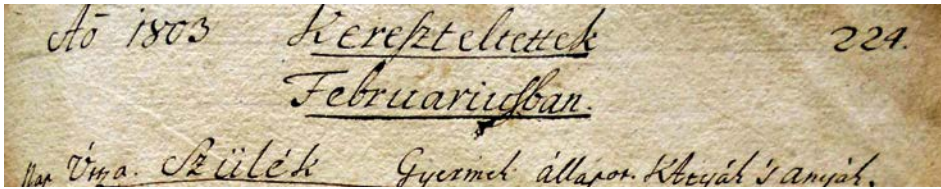 Aō 1803 Kereſzteltettek 224.
Februariuſban.
Nap Utza. Szülék Gyermek állapot. KAtyák 's anyák.